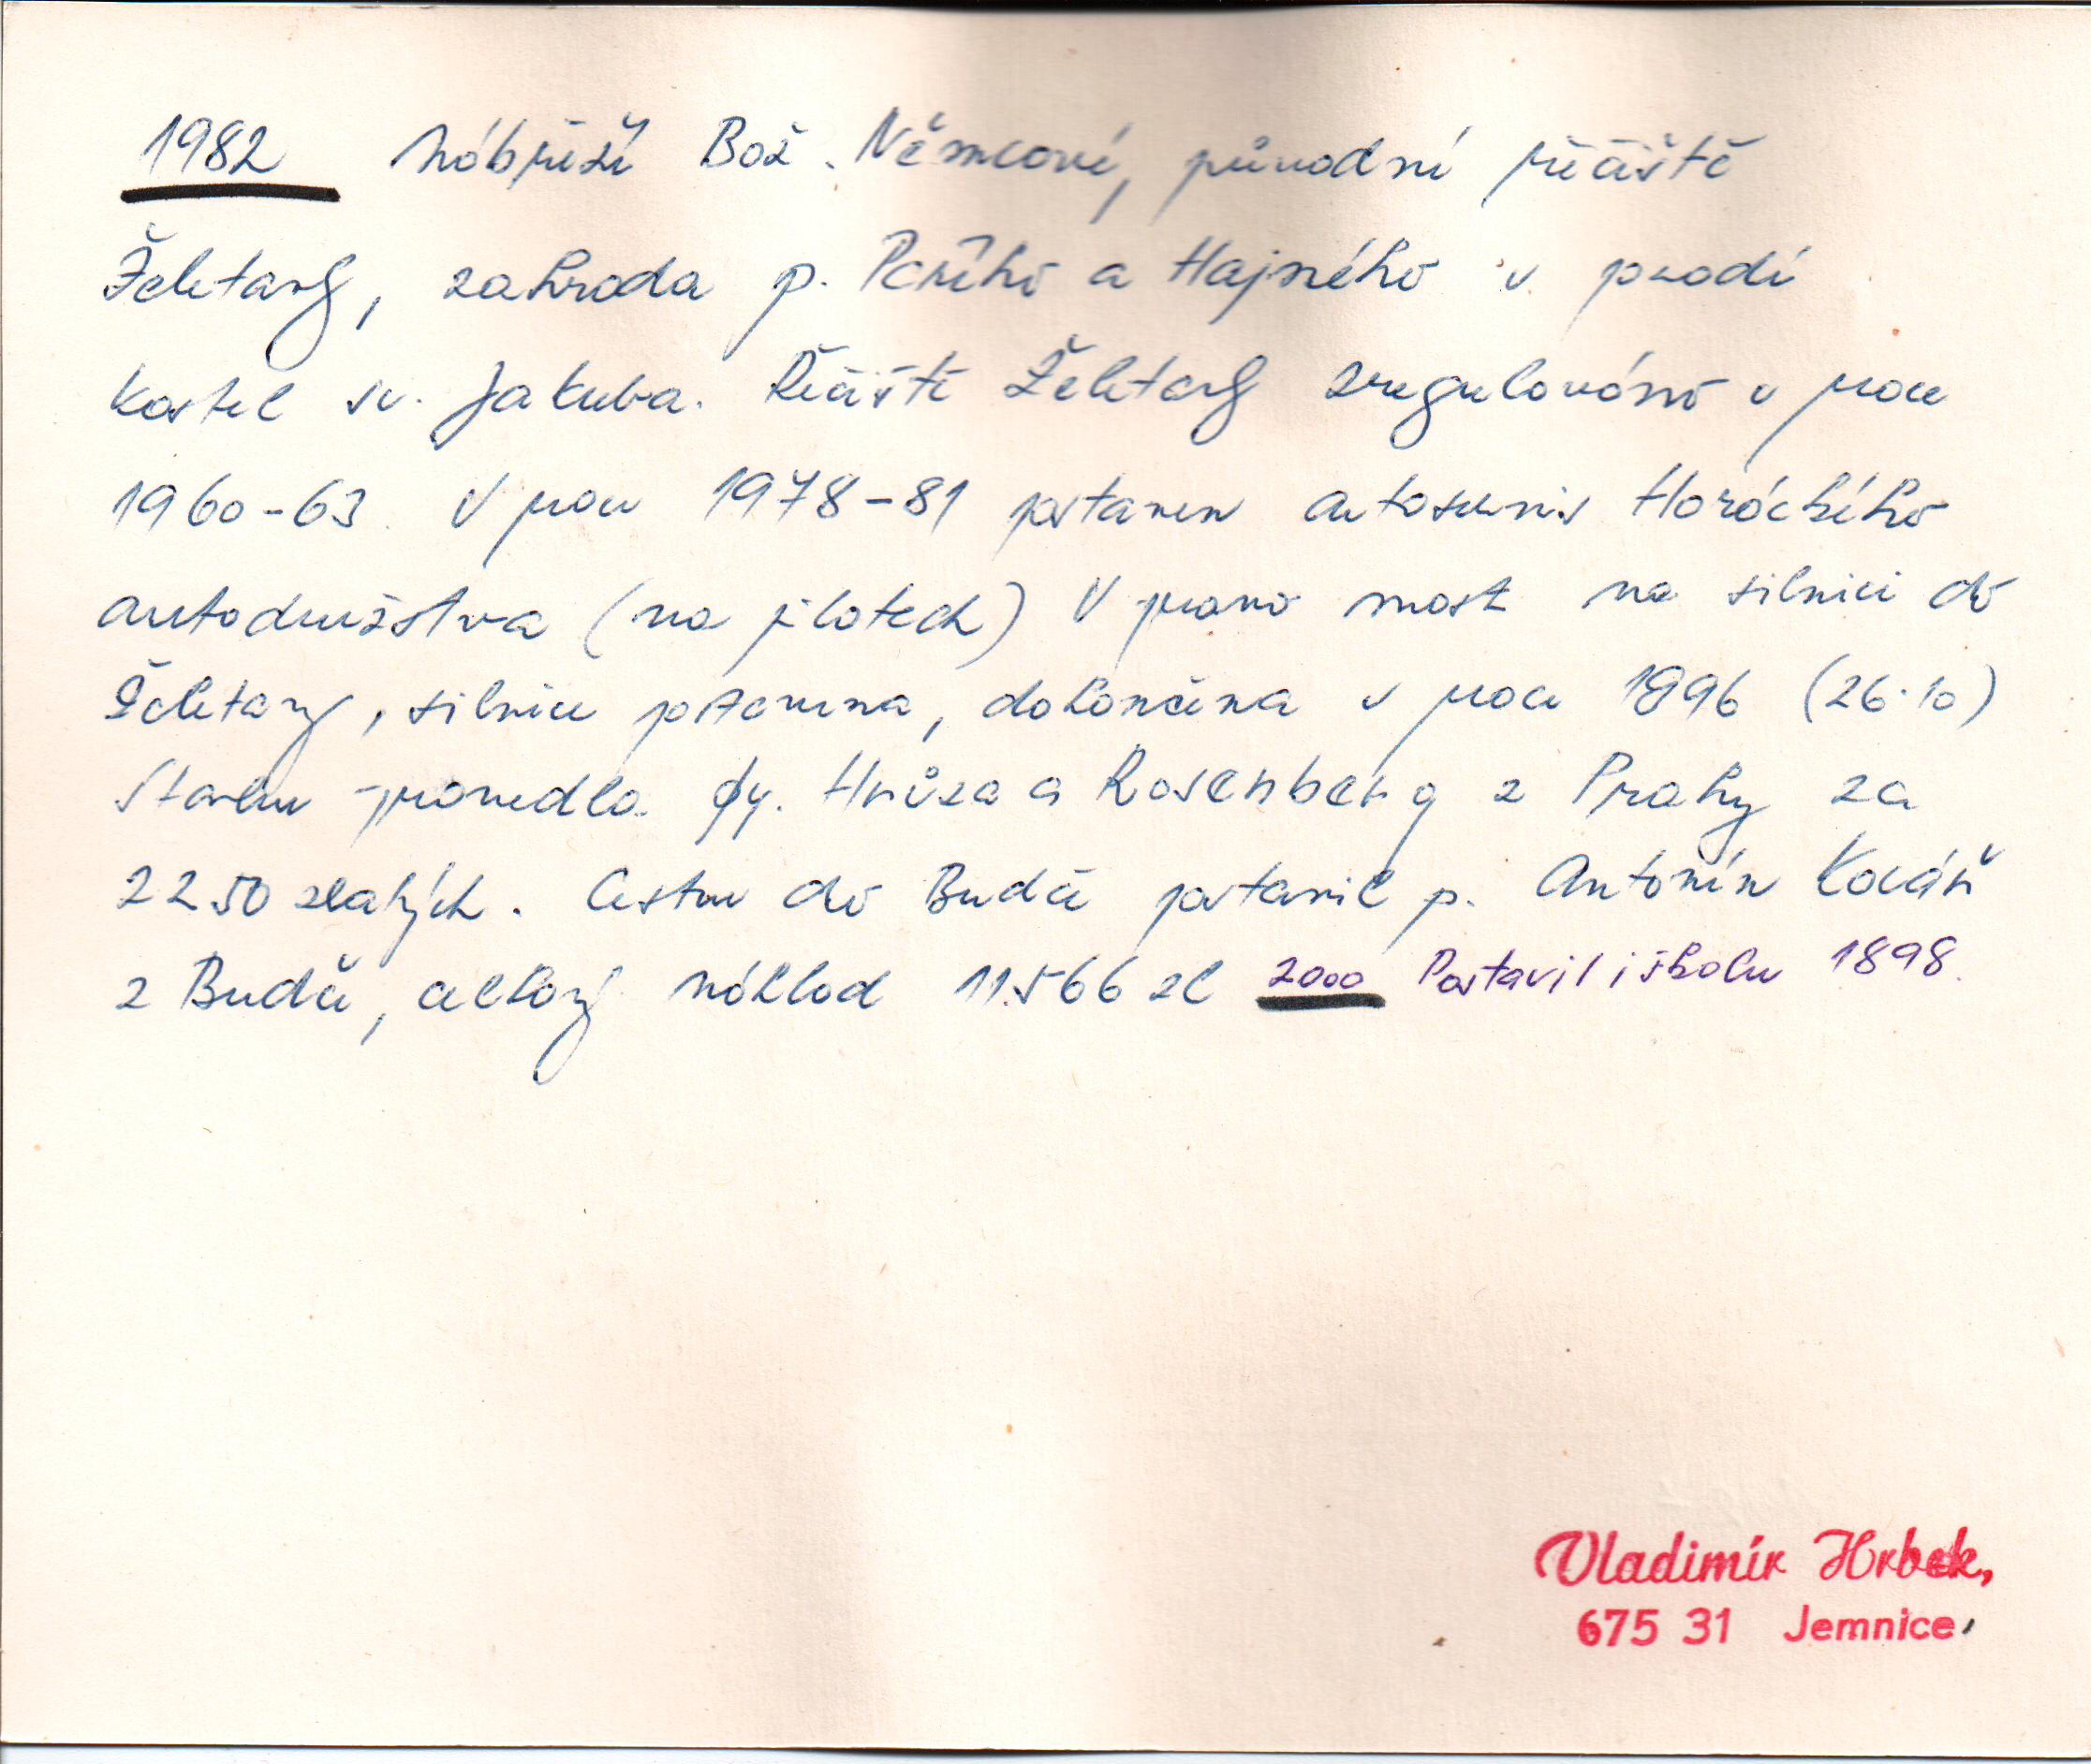 1982 Nábřeží Bož. Němcové, původní řečiště
Želetavy, zahrada p. a Hajného v pozadí
kostel sv. Jakuba. Řečiště Želetavy zregulováno v roce
1960-63. V roce 1978-81 postaven autoservis Horáckého
autodružstva (na pilotech) V pravo most na silnici do
Želetavy, silnice postavena, dokončena v roce 1896 (26.10)
Stavbu provedla fy. Hrůza a Rosenberg z Prahy za
2250 zlatých. Cestu do Budče postavil p. Antonín
z Budče, celkový náklad 11.566 zl 2000 Postavil i školu 1898.
Vladimír Hrbek,
675 31 Jemnice,